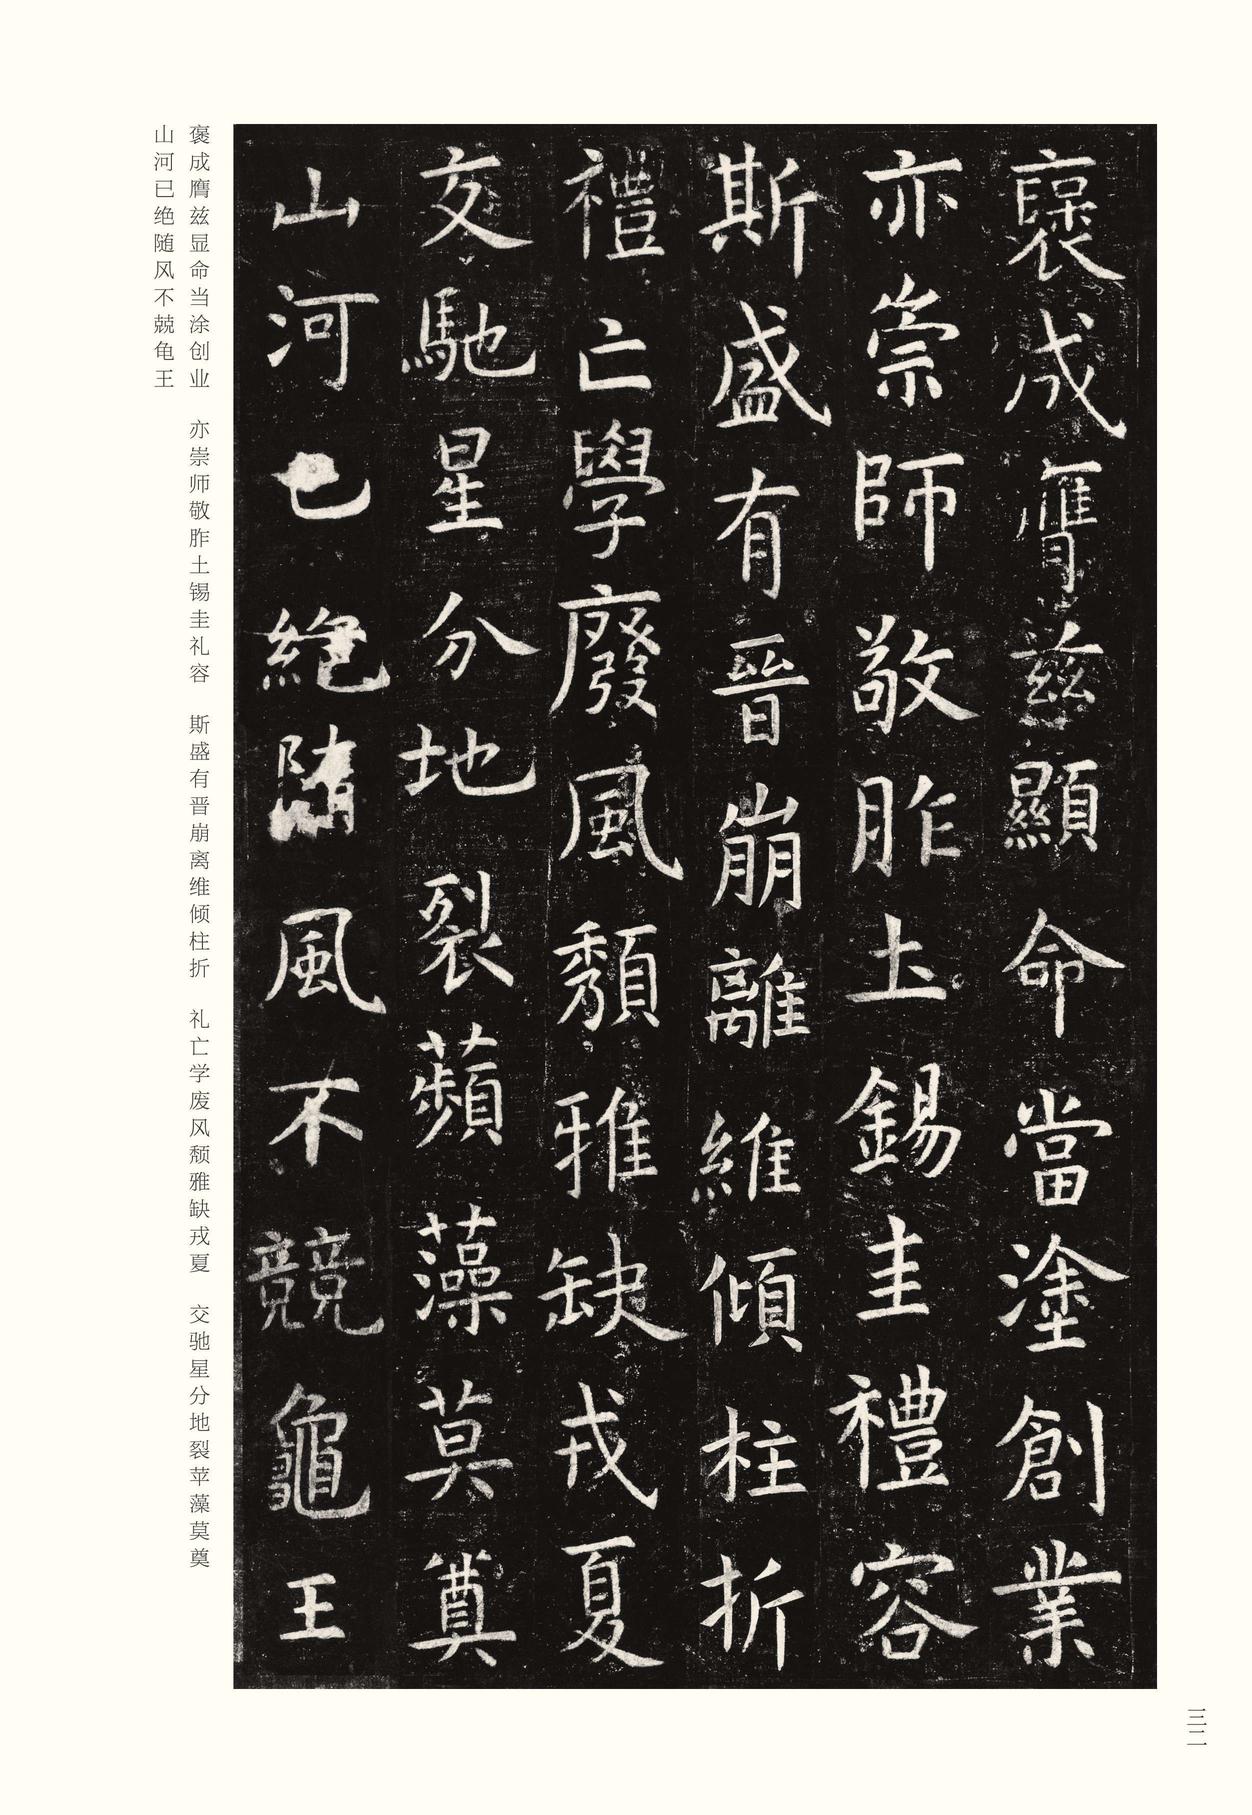 褒成膺茲顯命當塗創業
亦崇師敬胙土錫圭禮容
斯盛有晉崩離維傾柱折
禮亡學廢風頹雅缺戎夏
交馳星分地裂蘋藻莫奠
山河已絕隨風不競龜王
褒成膺兹显命当涂创业　亦崇师敬胙土锡圭礼容　斯盛有晋崩离维倾柱折　礼亡学废风颓雅缺戎夏　交驰星分地裂苹藻莫奠
山河已绝随风不兢龟王
三二